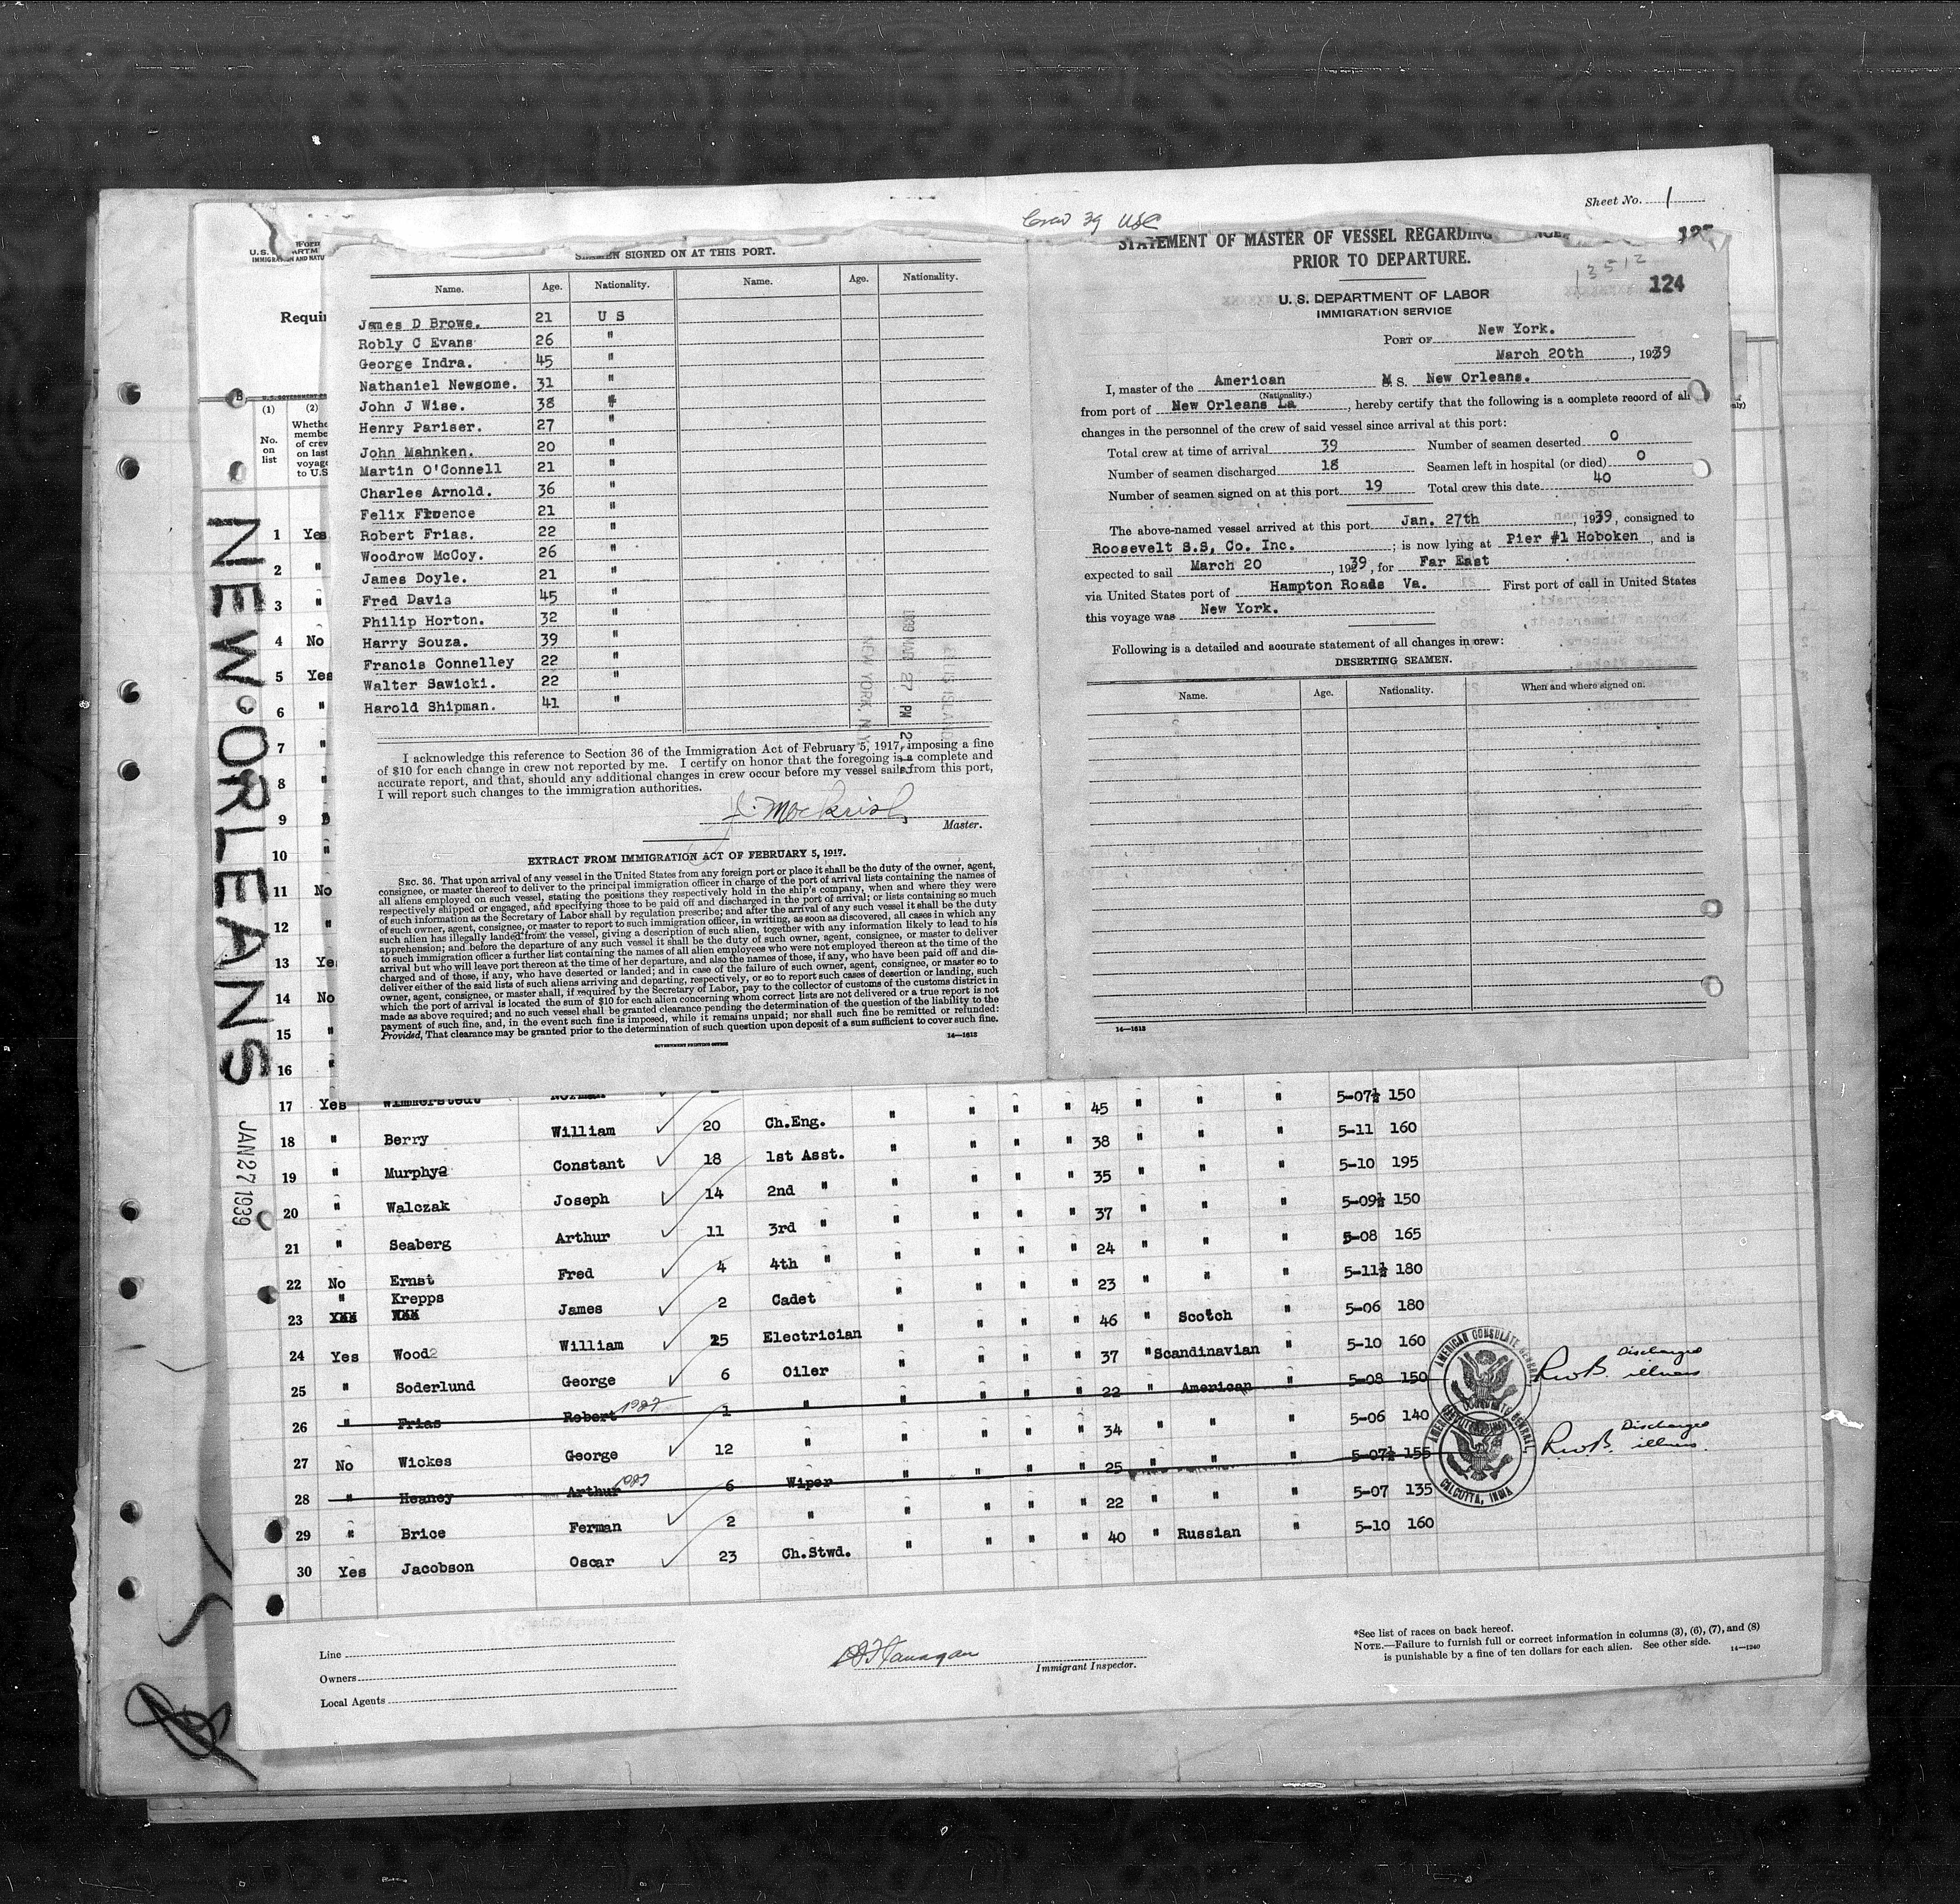 Sheet No. 1
Crew 39 USC
U.S.
IMMIGRATION AND NATU
Form
ARTM
Requir
(1) (2)
No. on list
Whethe
membe
of crew
on last
voyage
to U.S
NEW ORLEANS
JAN 27 1939
SEAMEN SIGNED ON AT THIS PORT.
Name. Age. Nationality. Name. Age. Nationality.
James D Browe. 21 U S
Robly C Evans 26 "
George Indra. 45 "
Nathaniel Newsome. 31 "
John J Wise. 38 "
Henry Pariser. 27 "
John Mahnken. 20 "
Martin O'Connell 21 "
Charles Arnold. 36 "
Felix 21 "
Robert Frias. 22 "
Woodrow McCoy. 26 "
James Doyle. 21 "
Fred Davis 45 "
Philip Horton. 32 "
Harry Souza. 39 "
Francis Connelley 22 "
Walter Sawicki. 22 "
Harold Shipman. 41 "
ELLIS ISLAND
27 PM 2
NEW YORK, N.Y.
I acknowledge this reference to Section 36 of the Immigration Act of February 5, 1917, imposing a fine
of $10 for each change in crew not reported by me. I certify on honor that the foregoing is a complete and
accurate report, and that, should any additional changes in crew occur before my vessel sails from this port,
I will report such changes to the immigration authorities.
Master.
EXTRACT FROM IMMIGRATION ACT OF FEBRUARY 5, 1917.
SEC. 36. That upon arrival of any vessel in the United States from any foreign port or place it shall be the duty of the owner, agent,
consignee, or master thereof to deliver to the principal immigration officer in charge of the port of arrival lists containing the names of
all aliens employed on such vessel, stating the positions they respectively hold in the ship's company, when and where they were
respectively shipped or engaged, and specifying those to be paid off and discharged in the port of arrival; or lists containing so much
of such information as the Secretary of Labor shall by regulation prescribe; and after the arrival of any such vessel it shall be the duty
of such owner, agent, consignee, or master to report to such immigration officer, in writing, as soon as discovered, all cases in which any
such alien has illegally landed from the vessel, giving a description of such alien, together with any information likely to lead to his
apprehension; and before the departure of any such vessel it shall be the duty of such owner, agent, consignee, or master to deliver
to such immigration officer a further list containing the names of all alien employees who were not employed thereon at the time of the
arrival but who will leave port thereon at the time of her departure, and also the names of those, if any, who have been paid off and dis-
charged and of those, if any, who have deserted or landed; and in case of the failure of such owner, agent, consignee, or master so to
deliver either of the said lists of such aliens arriving and departing, respectively, or so to report such cases of desertion or landing, such
owner, agent, consignee, or master shall, if required by the Secretary of Labor, pay to the collector of customs of the customs district in
which the port of arrival is located the sum of $10 for each alien concerning whom correct lists are not delivered or a true report is not
made as above required; and no such vessel shall be granted clearance pending the determination of the question of the liability to the
payment of such fine, and, in the event such fine is imposed, while it remains unpaid; nor shall such fine be remitted or refunded:
Provided, That clearance may be granted prior to the determination of such question upon deposit of a sum sufficient to cover such fine.
GOVERNMENT PRINTING OFFICE 14—1613
STATEMENT OF MASTER OF VESSEL REGARDING
PRIOR TO DEPARTURE.
13512
124
U. S. DEPARTMENT OF LABOR
IMMIGRATION SERVICE
PORT OF New York.
March 20th, 1939
I, master of the American M.S. New Orleans.
(Nationality.)
from port of New Orleans La, hereby certify that the following is a complete record of all
changes in the personnel of the crew of said vessel since arrival at this port:
Total crew at time of arrival 39 Number of seamen deserted 0
Number of seamen discharged 18 Seamen left in hospital (or died) 0
Number of seamen signed on at this port 19 Total crew this date 40
The above-named vessel arrived at this port Jan. 27th, 1939, consigned to
Roosevelt S.S, Co. Inc.; is now lying at Pier #1 Hoboken, and is
expected to sail March 20, 1939, for Far East
via United States port of Hampton Roads Va. First port of call in United States
this voyage was New York.
Following is a detailed and accurate statement of all changes in crew:
DESERTING SEAMEN.
Name. Age. Nationality. When and where signed on.
14—1613
1 Yes
2 "
3 "
4 No
5 Yes
6 "
7 "
8 "
9
10 "
11 No
12 "
13 Yes
14 No
15 "
16 "
17 Yes Wimmerstedt Norman " " " 45 " " " 5-07½ 150
18 " Berry William 20 Ch.Eng. " " " 38 " " " 5-11 160
19 " Murphy Constant 18 1st Asst. " " " 35 " " " 5-10 195
20 " Walczak Joseph 14 2nd " " " " 37 " " " 5-09½ 150
21 " Seaberg Arthur 11 3rd " " " " 24 " " " 5-08 165
22 No Ernst Fred 4 4th " " " " 23 " " " 5-11½ 180
23 " Krepps James 2 Cadet " " " 46 " Scotch " 5-06 180
24 Yes Wood William 25 Electrician " " " 37 " Scandinavian " 5-10 160
25 " Soderlund George 6 Oiler " " " 22 " American " 5-08 150
26 " Frias Robert 1 " " " " 34 " " " 5-06 140
27 No Wickes George 12 " " " " 25 " " " 5-07½ 155
28 " Heaney Arthur 6 Wiper " " " 22 " " " 5-07 135
29 " Brice Ferman 2 " " " " 40 " Russian " 5-10 160
30 Yes Jacobson Oscar 23 Ch.Stwd. " " "
AMERICAN CONSULATE GENERAL
RwB. Discharged illness
AMERICAN CONSULATE GENERAL, CALCUTTA, INDIA
RwB. Discharged illness.
Line
Owners
Local Agents
Immigrant Inspector.
*See list of races on back hereof.
NOTE.—Failure to furnish full or correct information in columns (3), (6), (7), and (8)
is punishable by a fine of ten dollars for each alien. See other side. 14—1240